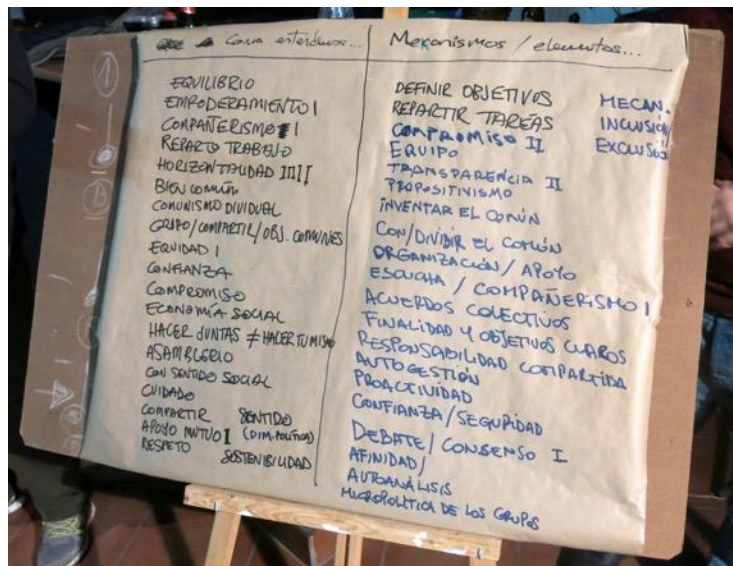 Como entendemos...
EQUILIBRIO
EMPODERAMIENTO I
COMPAÑERISMO I
REPARTO TRABAJO
HORIZONTALIDAD IIIII
BIEN COMÚN
COMUNISMO DIVIDUAL
GRUPO/COMPARTIR/OBJ. COMUNES
EQUIDAD I
CONFIANZA
COMPROMISO
ECONOMÍA SOCIAL
HACER JUNTAS ≠ HACER TU MISMO
ASAMBLEARIO
CON SENTIDO SOCIAL
CUIDADO
COMPARTIR SENTIDO
APOYO MUTUO I (DIM. POLÍTICA)
RESPETO
SOSTENIBILIDAD
Mecanismos / elementos...
DEFINIR OBJETIVOS
REPARTIR TAREAS
COMPROMISO II
EQUIPO
TRANSPARENCIA II
PROPOSITIVISMO
INVENTAR EL COMÚN
CON/DIVIDIR EL COMÚN
ORGANIZACIÓN / APOYO
ESCUCHA / COMPAÑERISMO I
ACUERDOS COLECTIVOS
FINALIDAD Y OBJETIVOS CLAROS
RESPONSABILIDAD COMPARTIDA
AUTOGESTIÓN
PROACTIVIDAD
CONFIANZA/SEGURIDAD
DEBATE/CONSENSO I
AFINIDAD/
AUTOANÁLISIS
MICROPOLITICA DE LOS GRUPOS
MECAN.
INCLUSIÓN
EXCLUSIÓN